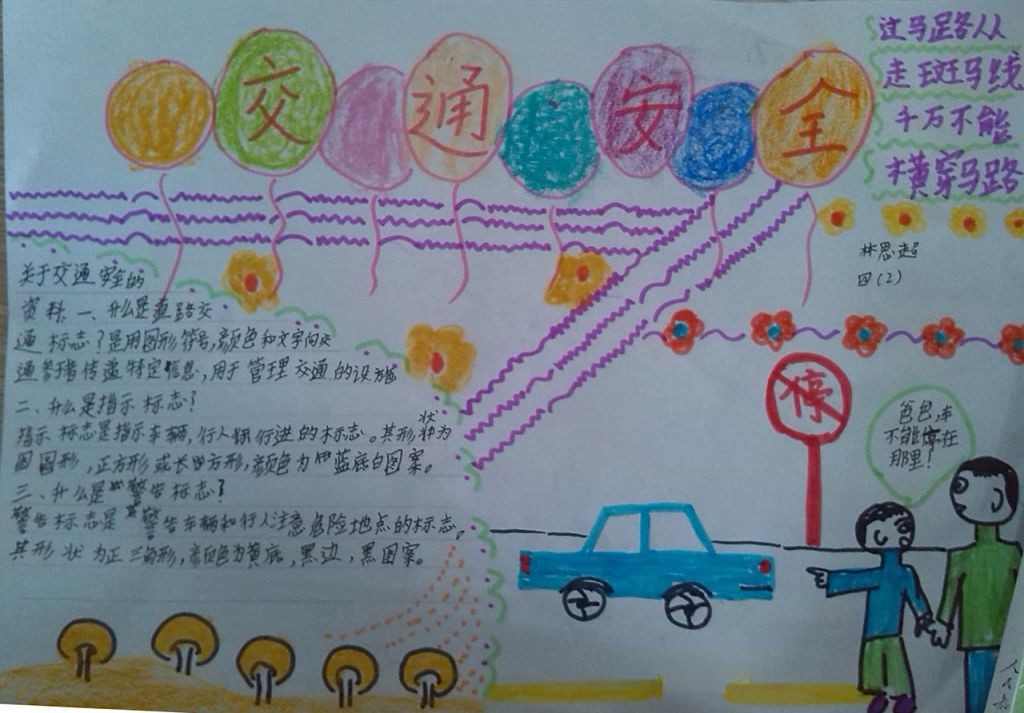 交通安全
过马路各人
走斑马线
千万不能
横穿马路
林思超
四(2)
关于交通安全的
资料:一、什么是道路交
通标志?是用图形符号,颜色和文字向交
通管理者传递特定信息,用于管理交通的设施
二、什么是指示标志?
指示标志是指示车辆,行人行进的标志。其形状为
圆形,正方形或长方形,颜色为蓝底白图案。
三、什么是警告标志?
警告标志是警告车辆和行人注意危险地点的标志。
其形状为正三角形,颜色为黄底,黑边,黑图案。
停
爸爸,车
不能停在
那里!